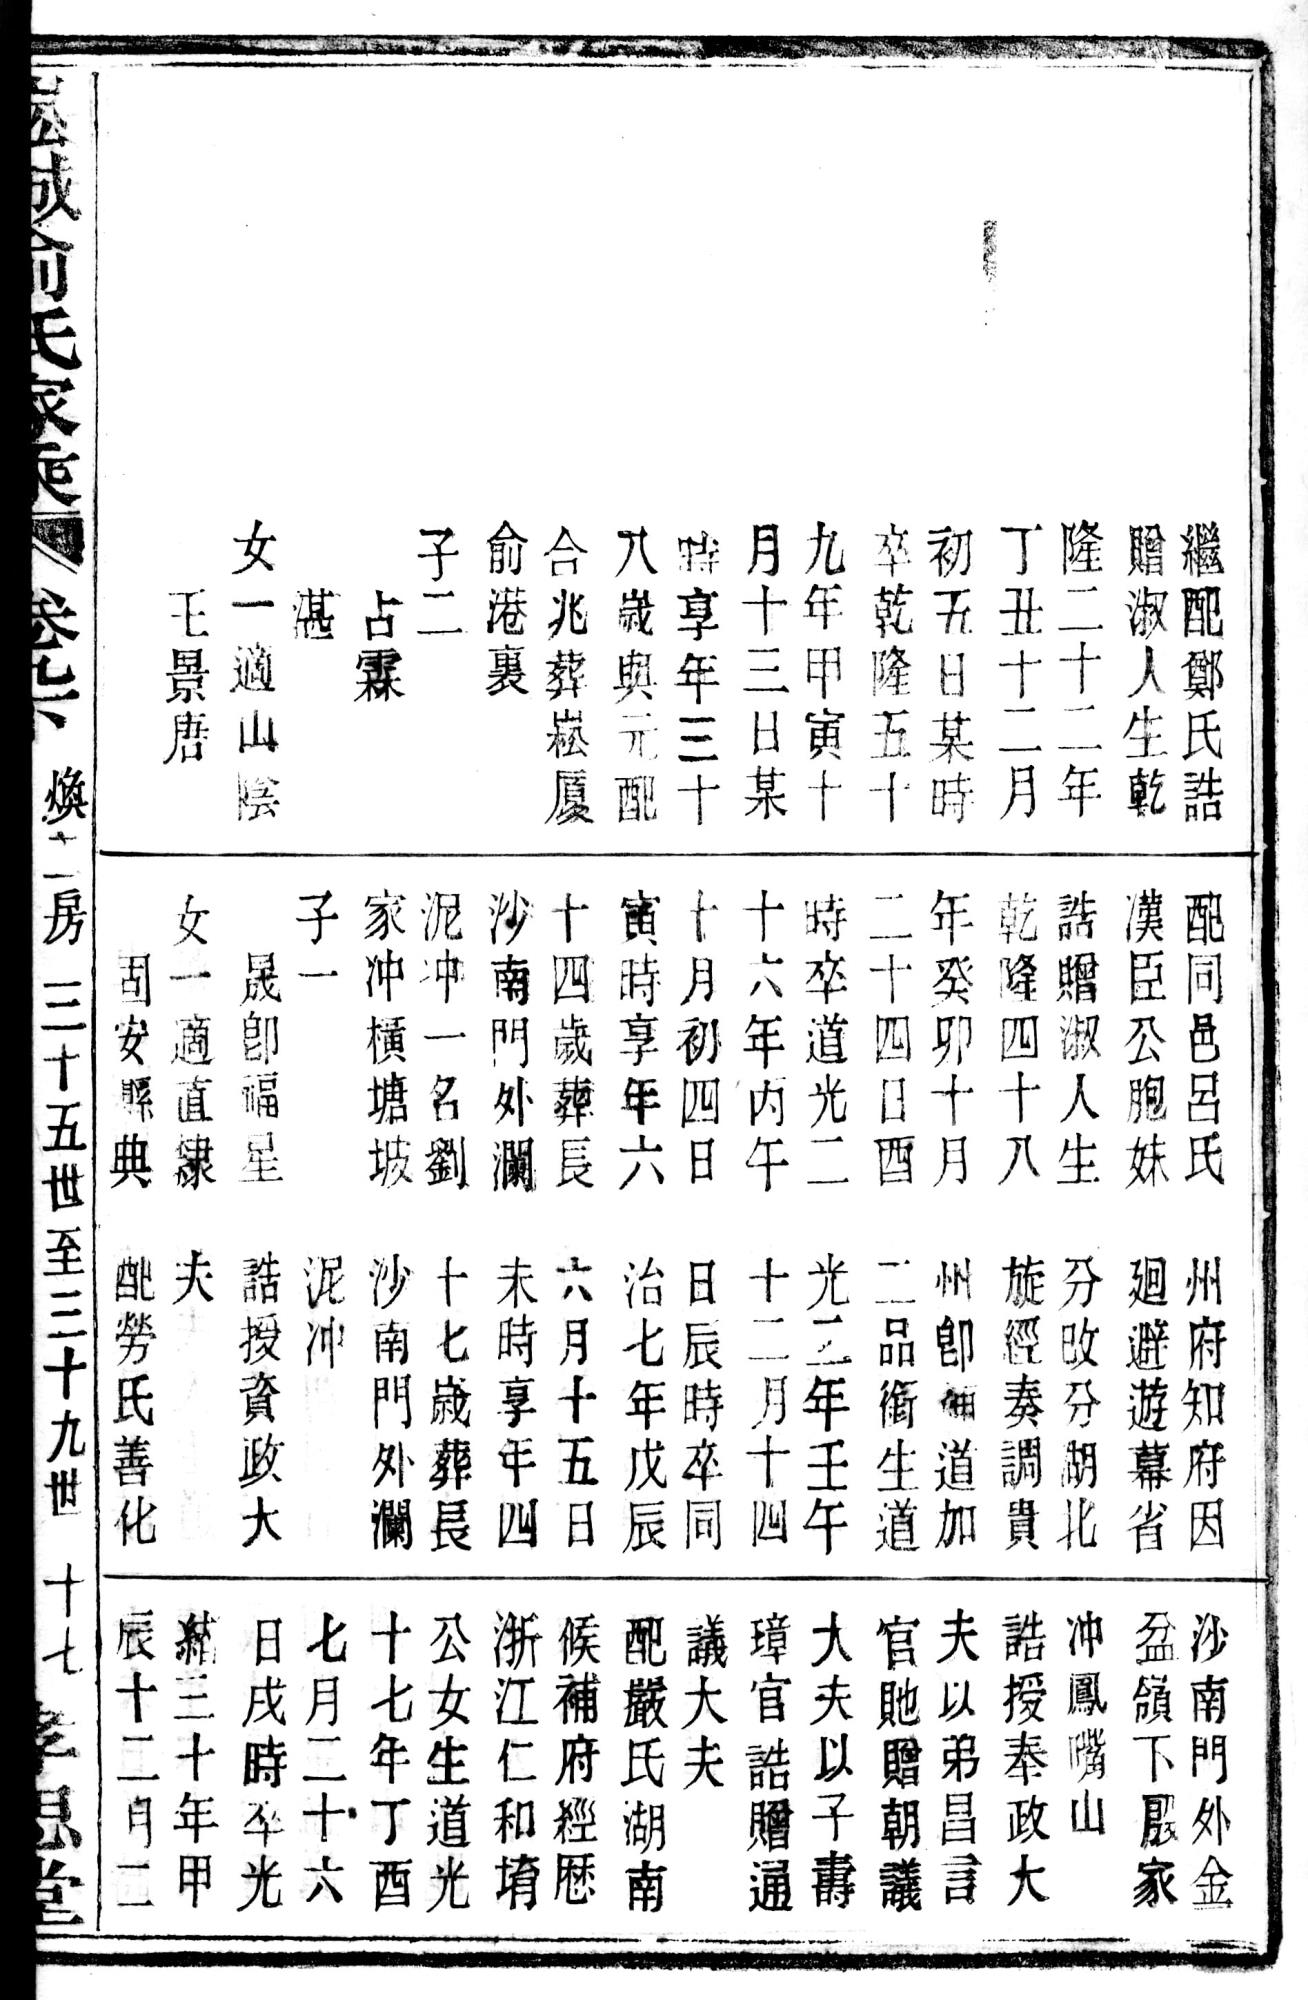 繼配鄭氏誥
贈淑人生乾
隆二十二年
丁丑十二月
初五日某時
卒乾隆五十
九年甲寅十
月十三日某
時享年三十
八歲與元配
合兆葬崧厦
俞港裏
子二
占霖
湛
女一適山陰
王景唐
配同邑呂氏
漢臣公胞妹
誥贈淑人生
乾隆四十八
年癸卯十月
二十四日酉
時卒道光二
十六年丙午
十月初四日
寅時享年六
十四歲葬長
沙南門外瀾
泥冲一名劉
家冲橫塘坡
子一
晟卽福星
女一適直隸
固安縣典
州府知府因
廻避遊幕省
分改分湖北
旋經奏調貴
州卽補道加
二品銜生道
光二年壬午
十二月十四
日辰時卒同
治七年戊辰
六月十五日
未時享年四
十七歲葬長
沙南門外瀾
泥冲
誥授資政大
夫
配勞氏善化
沙南門外金
盆嶺下嚴家
冲鳳嘴山
誥授奉政大
夫以弟昌言
官貤贈朝議
大夫以子壽
璋官誥贈通
議大夫
配嚴氏湖南
候補府經歷
浙江仁和堉
公女生道光
十七年丁酉
七月二十六
日戌時卒光
緒三十年甲
辰十二月二
崧城俞氏家乘
卷九下
煥十一房 三十五世至三十九世 十七
孝思堂